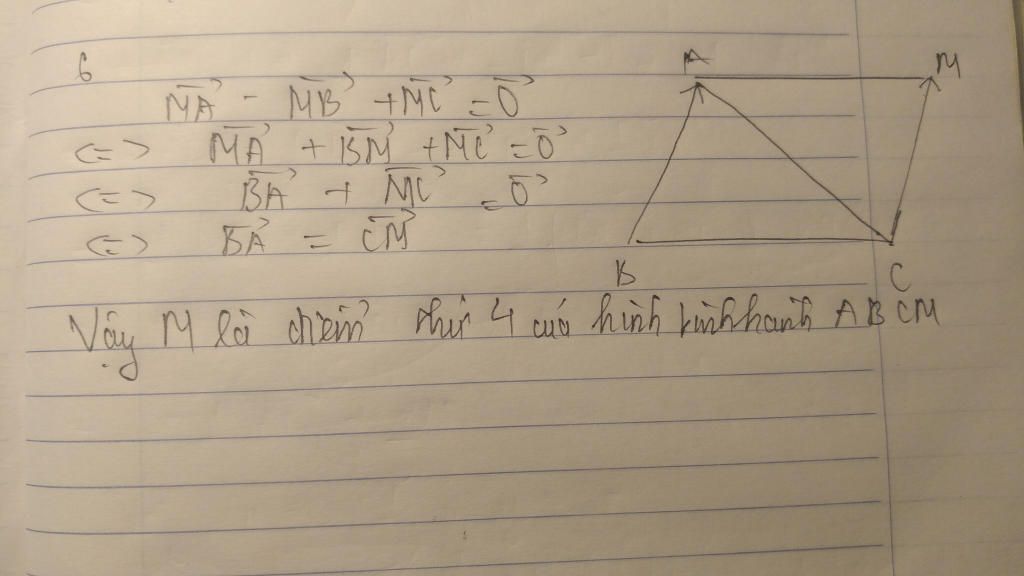 6
A
M
MA⃗ - MB⃗ + MC⃗ = 0⃗
<=> MA⃗ + BM⃗ + MC⃗ = 0⃗
<=> BA⃗ + MC⃗ = 0⃗
<=> BA⃗ = CM⃗
B
C
Vậy M là điểm thứ 4 của hình bình hành ABCM